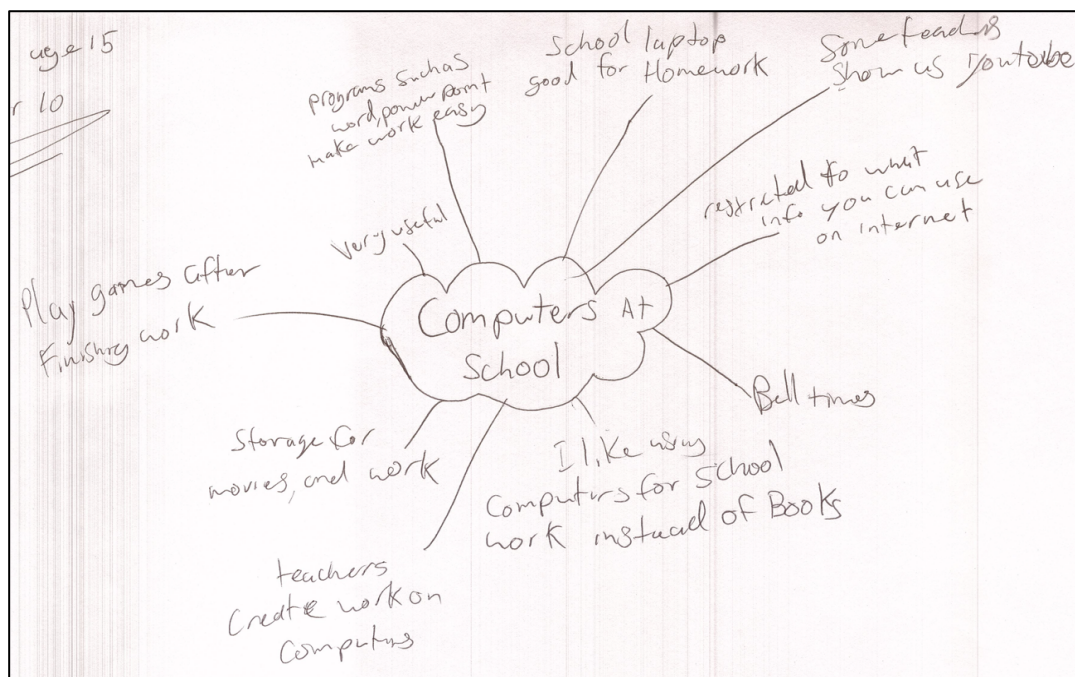 age 15
r 10
programs such as
word, power point
make work easy
School laptop
good for Homework
Some
show us youtube
restricted to what
info you can use
on internet
very useful
Play games after
Finishing work
Computers At
School
Bell times
Storage for
movies, and work
I like using
Computers for School
work instead of Books
teachers
Create work on
Computers